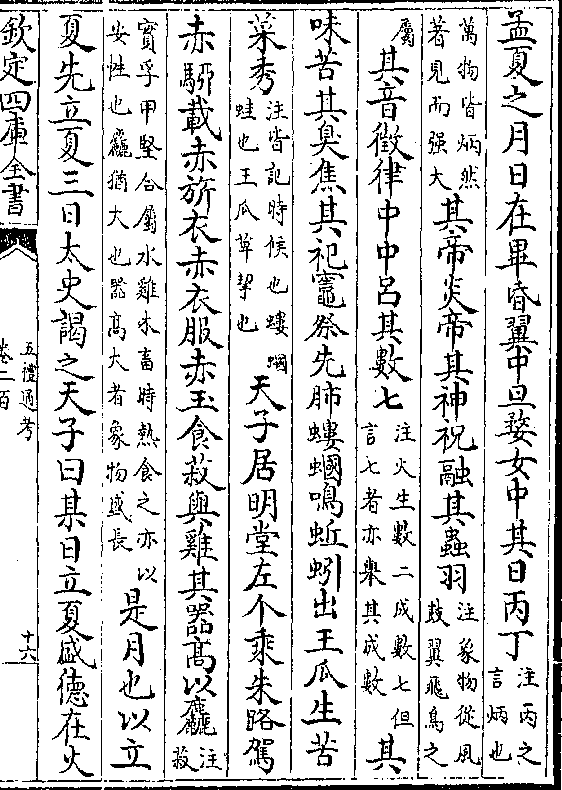 孟夏之月日在畢昏翼中旦婺女中其日丙丁注丙之言炳也
萬物皆炳然著見而强大其帝炎帝其神祝融其蟲羽注象物從風鼓翼飛鳥之
屬其音徵律中中呂其數七注火生數二成數七但言七者亦舉其成數其
味苦其臭焦其祀竈祭先肺螻蟈鳴蚯蚓出王瓜生苦
菜秀注皆記時候也螻蟈蛙也王瓜草挈也天子居明堂左个乘朱路駕
赤駵載赤旂衣赤衣服赤玉食菽與雞其器高以麤注菽
實孚甲堅合屬水雞木畜時熱食之亦以安性也麤猶大也器高大者象物盛長是月也以立
夏先立夏三日太史謁之天子曰某日立夏盛德在火
欽定四庫全書
五禮通考
卷二百
十六